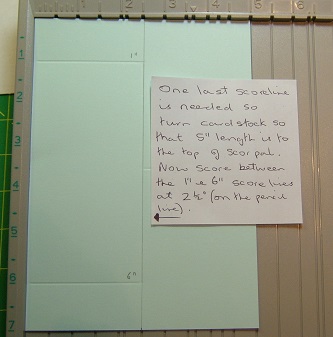 1 2 3 4 5
1"
One last scoreline
is needed so
turn cardstock so
that 5" length is to
the top of scor pal.
Now score between
the 1" & 6" score lines
at 2½" (on the pencil
line).
6"
1
2
3
4
5
6
7